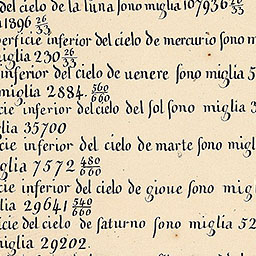 del cielo de la luna sono miglia 107936 26/33
1896 26/33
perficie inferior del cielo de mercurio sono m
iglia 230 26/33
inferior del cielo de uenere sono miglia 5
miglia 2884. 560/660
cie inferior del cielo del sol sono miglia 3
lia 35700
cie inferior del cielo de marte sono migl
glia 7572 480/660
cie inferior del cielo de gioue sono mig
lia 29641 540/660
cie del cielo de saturno sono miglia 52
miglia 29202.